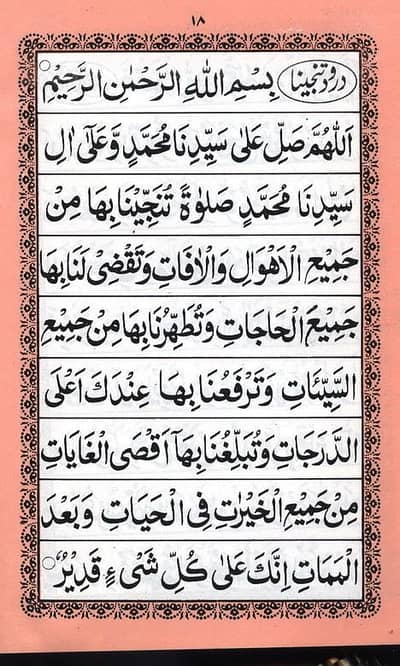 ١٨
درود تنجینا بِسْمِ اللهِ الرَّحْمٰنِ الرَّحِيْمِ
اَللّٰهُمَّ صَلِّ عَلٰى سَيِّدِنَا مُحَمَّدٍ وَّعَلٰٓى اٰلِ
سَيِّدِنَا مُحَمَّدٍ صَلٰوةً تُنَجِّيْنَا بِهَا مِنْ
جَمِيْعِ الْاَهْوَالِ وَالْاٰفَاتِ وَتَقْضِىْ لَنَا بِهَا
جَمِيْعَ الْحَاجَاتِ وَتُطَهِّرُنَا بِهَا مِنْ جَمِيْعِ
السَّيِّئَاتِ وَتَرْفَعُنَا بِهَا عِنْدَكَ اَعْلَى
الدَّرَجَاتِ وَتُبَلِّغُنَا بِهَآ اَقْصَى الْغَايَاتِ
مِنْ جَمِيْعِ الْخَيْرٰتِ فِى الْحَيَاتِ وَبَعْدَ
الْمَمَاتِ اِنَّكَ عَلٰى كُلِّ شَىْءٍ قَدِيْرٌ